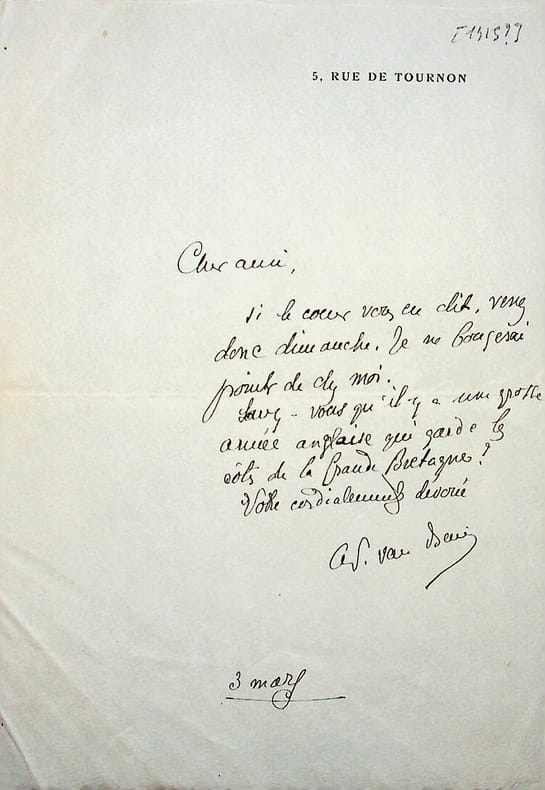 [1915?]
5, RUE DE TOURNON
Cher ami,
si le cœur vous en dit, venez
donc dimanche. Je ne bougerai
point de chez moi.
Savez-vous qu'il y a une grosse
armée anglaise qui garde les
côtes de la Grande Bretagne?
Votre cordialement dévoué
Ad. van Bever
3 mars